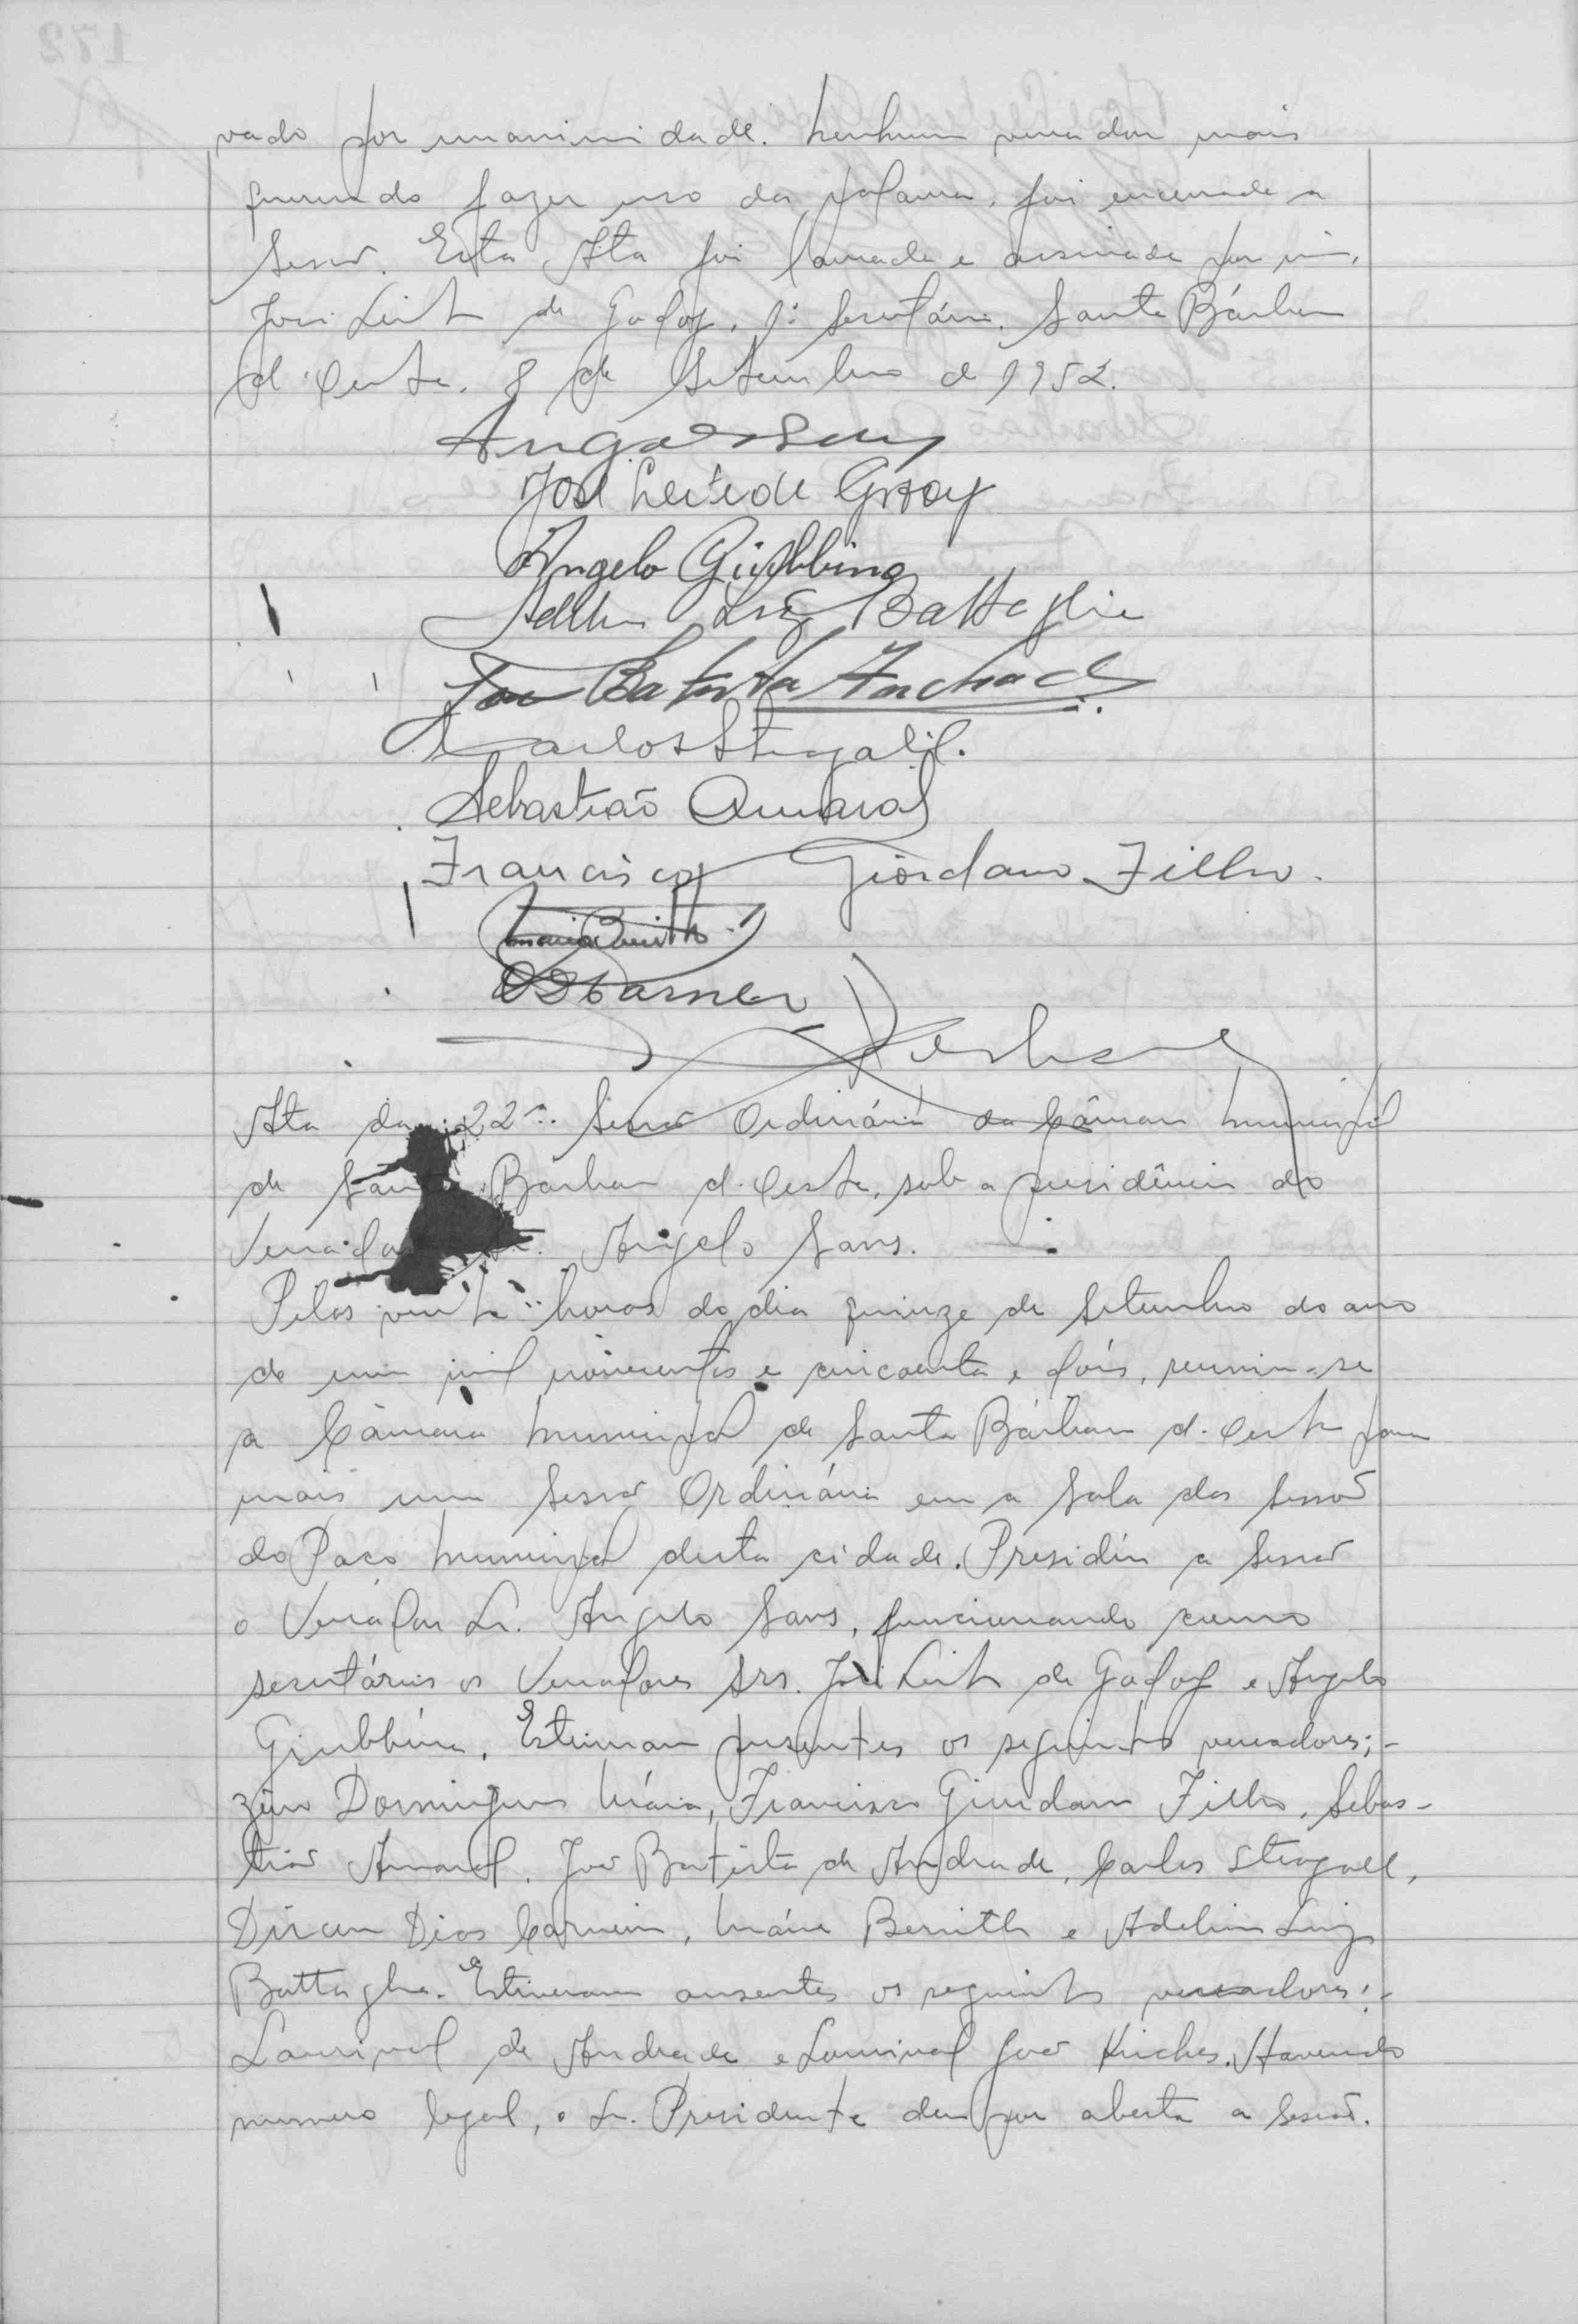 vado por unanimidade. Nenhum vereador mais
querendo fazer uso da palavra, foi encerrada a
Sessão. Esta Ata foi lavrada e assinada por mim,
José Leite de Godoy, 1º Secretário. Santa Bárbara
d'Oeste, 8 de Setembro de 1952.
Angelo Sans
José Leite de Godoy
Angelo Giubbina
Adelino Luiz Battaglia
João Batista Andrade
Carlos Steagall.
Sebastião Amaral
Francisco Giordano Filho.
Mário Benith
DDCarneiro
Ata da 22ª. Sessão Ordinária da Câmara Municipal
de Santa Bárbara d'Oeste, sob a presidência do
Vereador Sr. Angelo Sans.
Pelas vinte horas do dia quinze de Setembro do ano
de um mil novecentos e cincoenta e dois, reuniu-se
a Câmara Municipal de Santa Bárbara d'Oeste para
mais uma Sessão Ordinária em a Sala das Sessões
do Paço Municipal desta cidade. Presidiu a Sessão
o Vereador Sr. Angelo Sans, funcionando como
secretários os Vereadores Srs. José Leite de Godoy e Angelo
Giubbina. Estiveram presentes os seguintes vereadores;-
Zino Domingues Maia, Francisco Giordano Filho, Sebas-
tião Amaral, João Batista de Andrade, Carlos Steagall,
Dirceu Dias Carneiro, Mário Benith e Adelino Luiz
Battaglia. Estiveram ausentes os seguintes vereadores:-
Lourival de Andrade e Lourival João Hirches. Havendo
numero legal, o Sr. Presidente deu por aberta a Sessão.